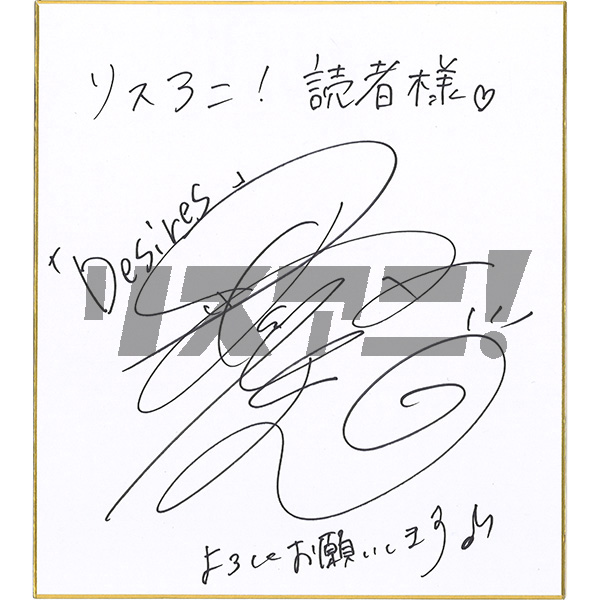 リスアニ! 読者様♡
「Desires」
リスアニ!
よろしくお願いします♪